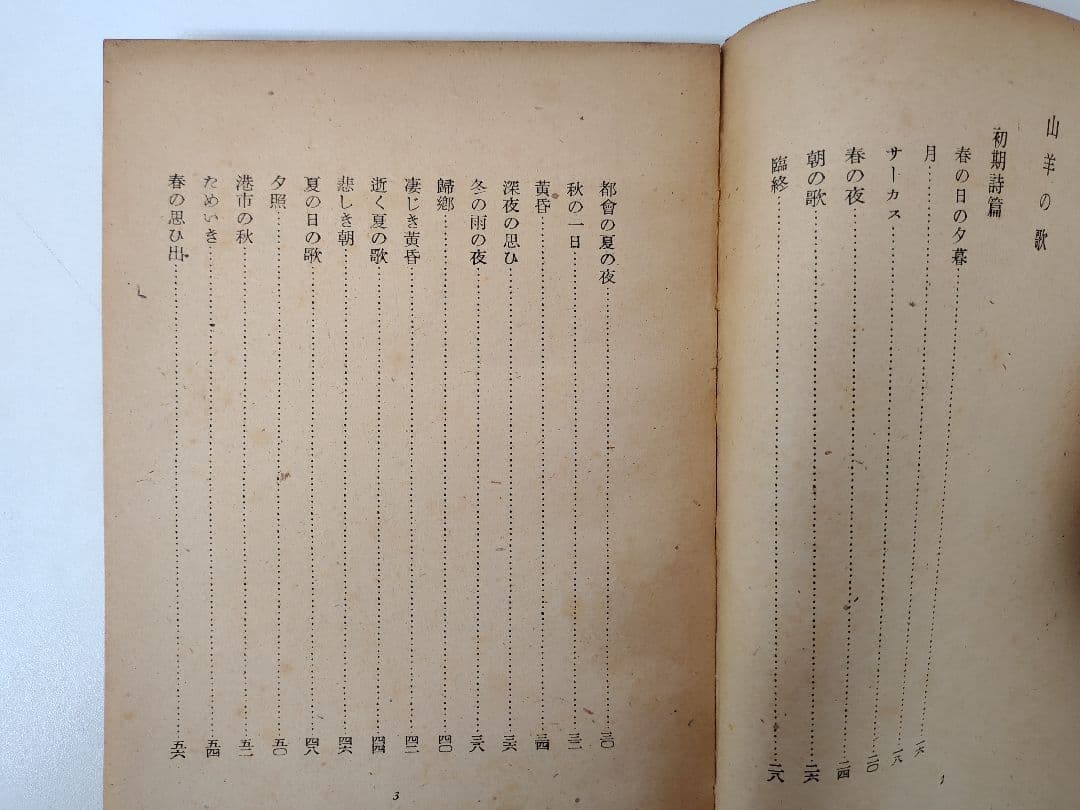 山羊の歌
初期詩篇
春の日の夕暮……一六
月……一八
サーカス……二〇
春の夜……二四
朝の歌……二六
臨終……二八
都會の夏の夜……三〇
秋の一日……三二
黄昏……三四
深夜の思ひ……三六
冬の雨の夜……三八
歸鄕……四〇
凄じき黄昏……四二
逝く夏の歌……四四
悲しき朝……四六
夏の日の歌……四八
夕照……五〇
港市の秋……五二
ためいき……五四
春の思ひ出……五六
3